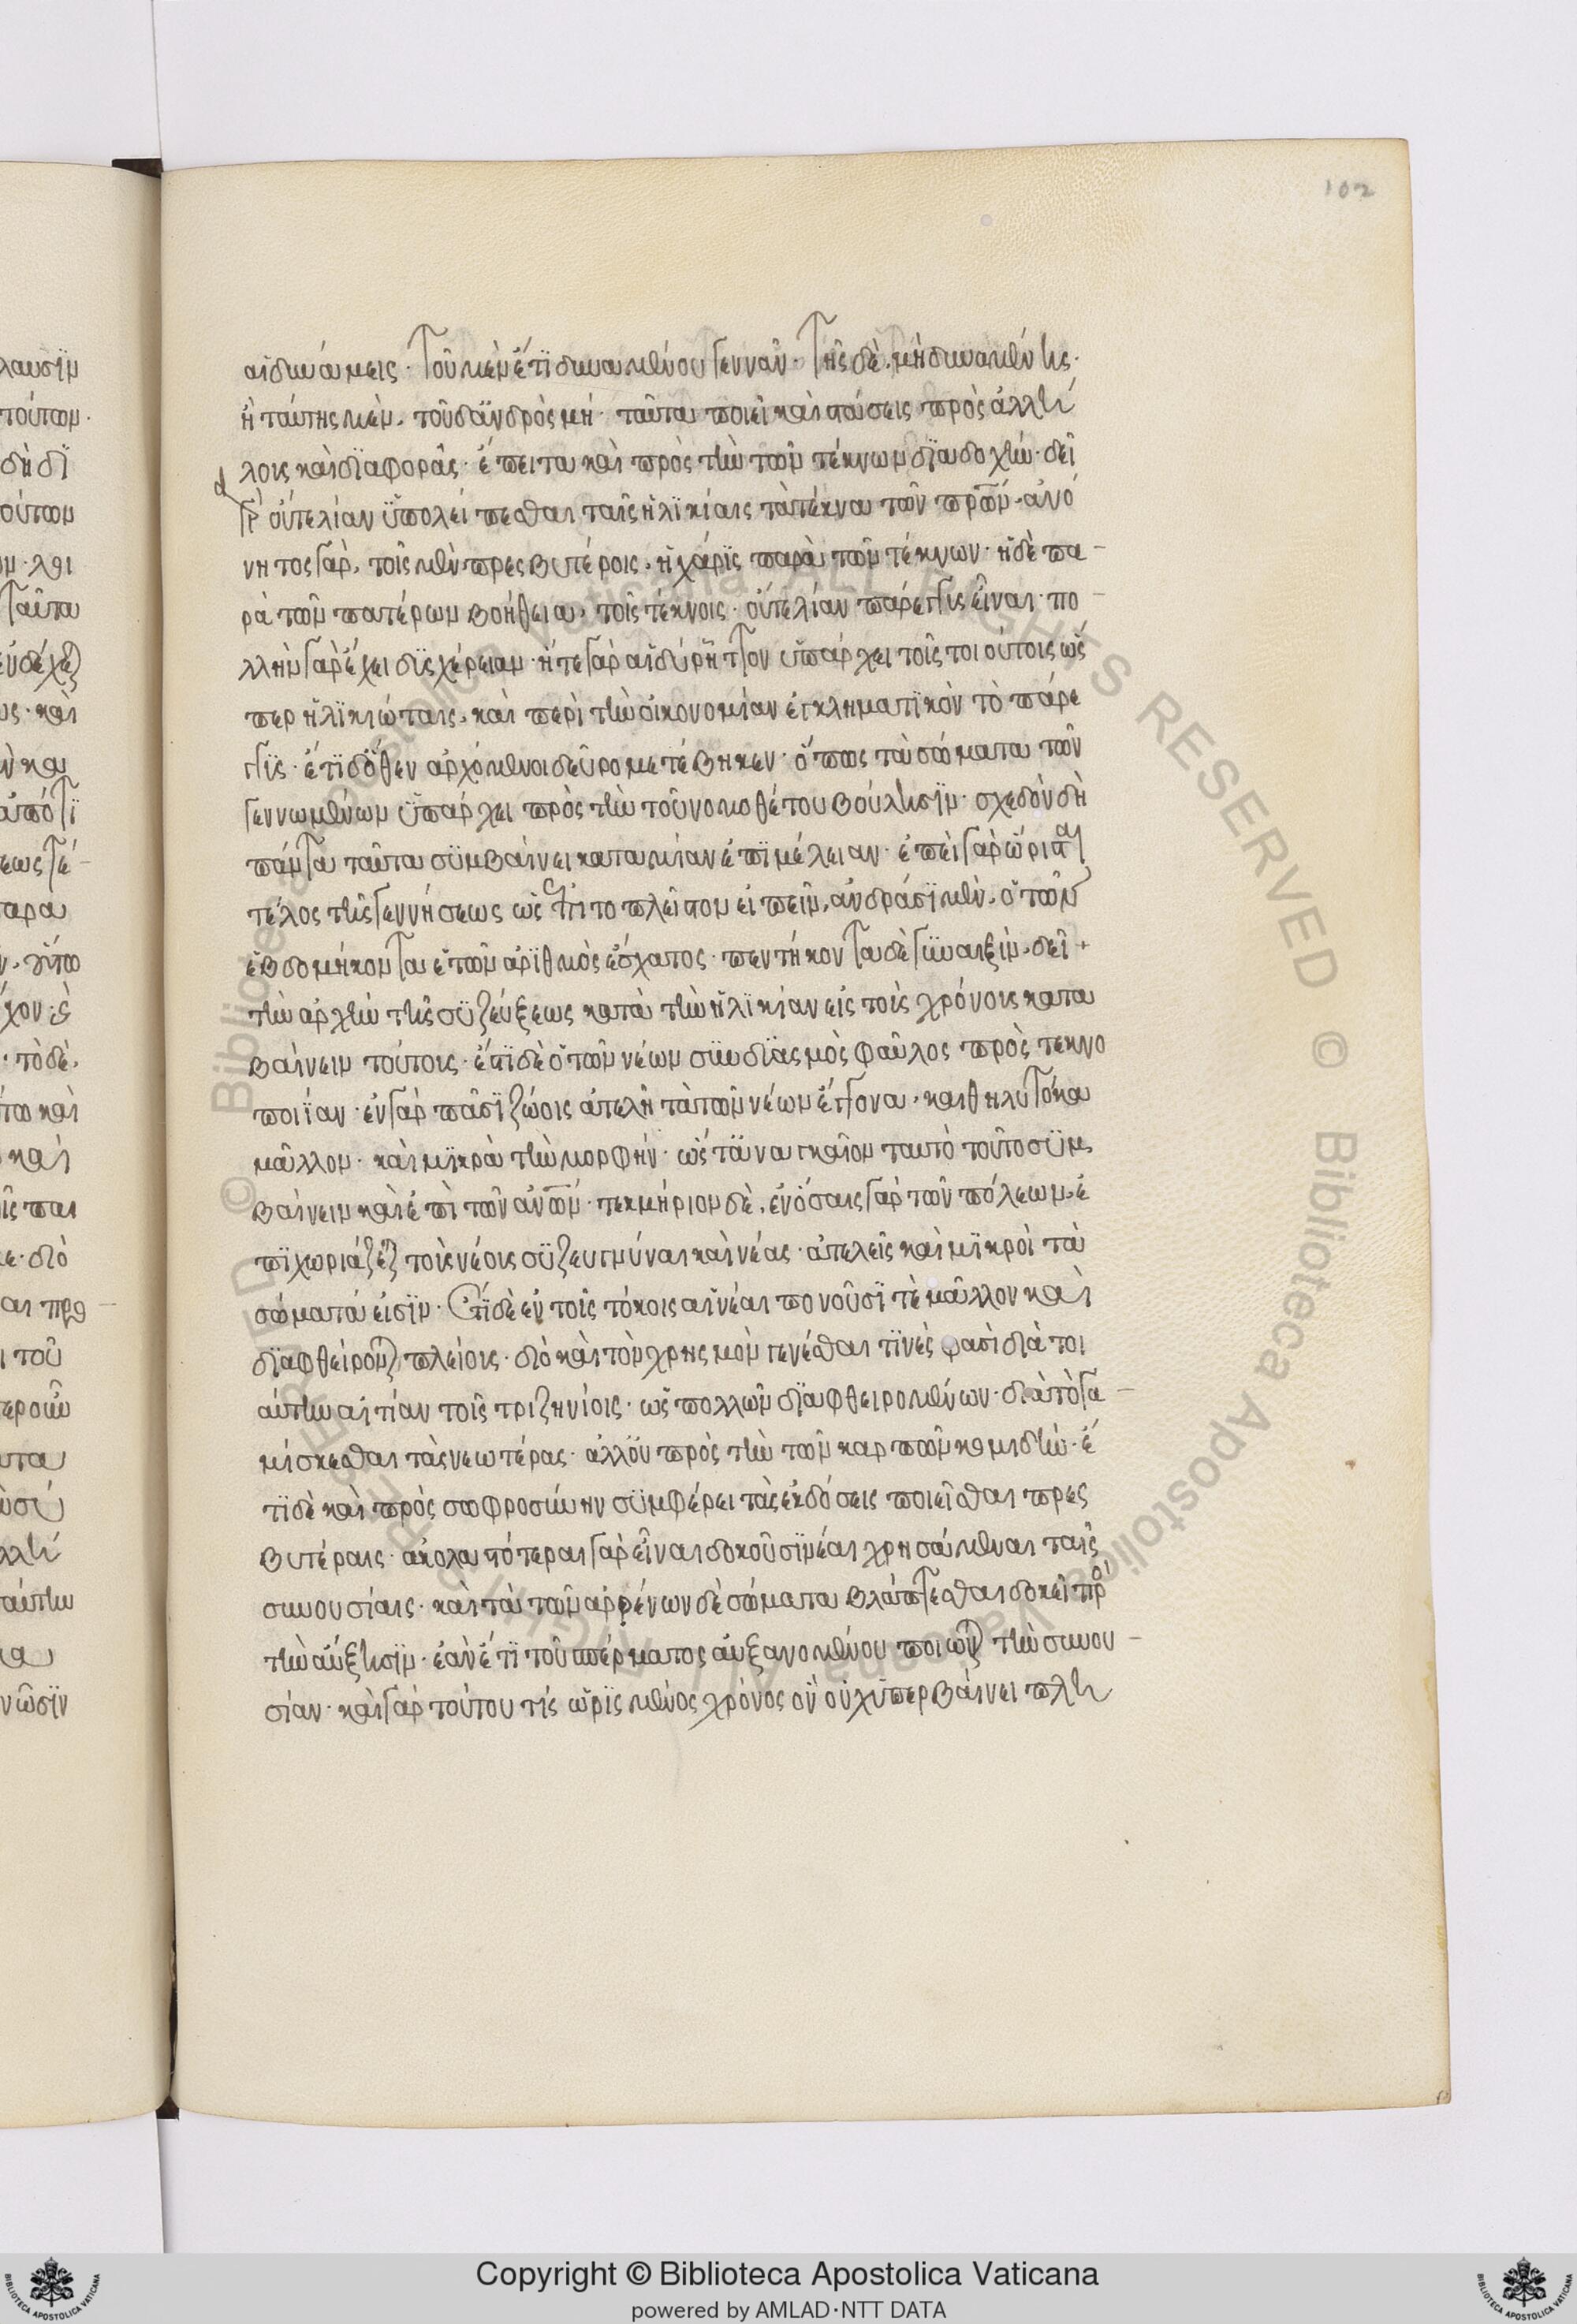 102
αἱ δυνάμεις· τοῦ μὲν ἔτι δυναμένου γεννᾶν· τῆς δὲ, μὴ δυναμένης·
ἢ ταύτης μὲν, τοῦ δ' ἀνδρὸς μή· ταῦτα ποιεῖ καὶ στάσεις πρὸς ἀλλή
λους καὶ διαφοράς· ἔπειτα καὶ πρὸς τὴν τῶν τέκνων διαδοχήν· δεῖ
γὰρ οὔτε λίαν ὑπολείπεσθαι ταῖς ἡλικίαις τὰ τέκνα τῶν πρῶν· ἀνό
νητος γὰρ, τοῖς μὲν πρεσβυτέροις, ἡ χάρις παρὰ τῶν τέκνων· ἡ δὲ πα
ρὰ τῶν πατέρων βοήθεια, τοῖς τέκνοις· οὔτε λίαν πάρεγγυς εἶναι· πο
λλὴν γὰρ ἔχει δυσχέρειαν· ἥ τε γὰρ αἰδὼς ἧττον ὑπάρχει τοῖς τοιούτοις ὥσ
περ ἡλικιώταις, καὶ περὶ τὴν οἰκονομίαν ἐγκληματικὸν τὸ πάρε
γγυς· ἔτι δ' ὅθεν ἀρχόμενοι δεῦρο μετέβημεν· ὅπως τὰ σώματα τῶν
γεννωμένων ὑπάρχει πρὸς τὴν τοῦ νομοθέτου βούλησιν· σχεδὸν δὴ
πάντα ταῦτα συμβαίνει κατα μίαν ἐπιμέλειαν· ἐπεὶ γὰρ ὥρισται
τέλος τῆς γεννήσεως ὡς ἐπι το πλεῖστον εἰπεῖν, ἀνδράσι μὲν, ὁ τῶν
ἑβδομήκοντα ἐτῶν ἀριθμὸς ἔσχατος· πεντήκοντα δὲ γυναιξὶν, δεῖ
τὴν ἀρχὴν τῆς συζεύξεως κατὰ τὴν ἡλικίαν εἰς τοὺς χρόνους κατα
βαίνειν τούτους· ἔστι δὲ ὁ τῶν νέων συνδιασμὸς φαῦλος πρὸς τεκνο
ποιίαν· ἐν γὰρ πᾶσι ζώοις ἀτελῆ τὰ τῶν νέων ἔγγονα, και θηλυτόκα
μᾶλλον· καὶ μικρὰ τὴν μορφήν· ὥστ' ἀναγκαῖον ταυτὸ τοῦτο συμ
βαίνειν καὶ ἐπὶ τῶν ἀνῶν· τεκμήριον δὲ, ἐν ὅσαις γὰρ τῶν πόλεων, ἐ
πιχωριάζεται τοὺς νέους συζευγνύναι καὶ νέας· ἀτελεῖς καὶ μικροὶ τὰ
σώματά εἰσιν· Ἔτι δὲ ἐν τοῖς τόκοις αἱ νέαι πονοῦσί τε μᾶλλον καὶ
διαφθείρονται πλείους· διὸ καὶ τὸν χρησμὸν γενέσθαι τινές φασὶ διὰ τοι
αύτην αἰτίαν τοῖς τριζηνίοις· ὡς πολλῶν διαφθειρομένων· διὰ τὸ γα
μίσκεσθαι τὰς νεωτέρας· ἀλλ' οὐ πρὸς τὴν τῶν καρπῶν κομιδήν· ἔ
τι δὲ καὶ πρὸς σωφροσύνην συμφέρει τὰς ἐκδόσεις ποιεῖσθαι πρεσ
βυτέραις· ἀκολαστότεραι γὰρ εἶναι δοκοῦσι νέαι χρησάμεναι ταῖς
συνουσίαις· καὶ τὰ τῶν ἀρρένων δὲ σώματα βλάπτεσθαι δοκεῖ πρὸς
τὴν αὔξησιν· ἐὰν ἔτι τοῦ σπέρματος αὐξανομένου ποιῶνται τὴν συνου
σίαν· καὶ γὰρ τούτου τίς ὡρισμένος χρόνος ὃν οὐχ ὑπερβαίνει πλη
Copyright © Biblioteca Apostolica Vaticana
powered by AMLAD·NTT DATA